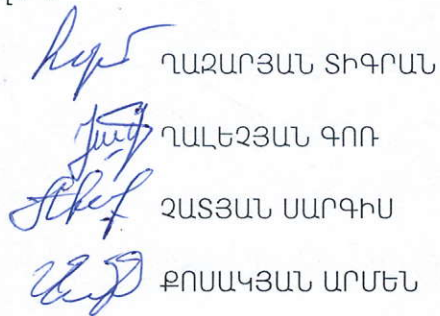 ՂԱԶԱՐՅԱՆ ՏԻԳՐԱՆ
ՂԱԼԵՉՅԱՆ ԳՈՌ
ՉԱՏՅԱՆ ՍԱՐԳԻՍ
ՔՈՍԱԿՅԱՆ ԱՐՄԵՆ